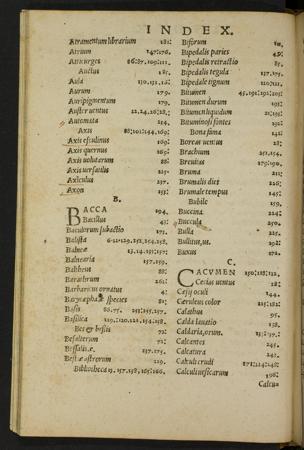 INDEX.
Atramentum librarium 182:
Atrium 147:176.
Atticurges 66:87.109:111.
Auctus 185.
Aula 130.131.
Aurum 179.
Auripigmentum 179.
Auster uentus 22.24.26:28:
Automata 214.
Axis 88:101:154.169:
Axis esculinus 169:
Axis quernus 169:
Axis uolutarum 88:
Axis uersatilis 215:
Axiculus 257.
Axon 253:
B.
BACCA 194.
Bacillus 41:
Baculorum subactio 171.
Balista 6.12:
Balneae 13.14.
Balnearia 157.159.
Baltheus 88:
Barathrum 262:
Barbaricus ornatus 4:
Barycephalae species 81:
Basis 66.75.
Basilica 119.:120.122.154.158.
Bes & bessis 72:
Besalterum 72:
Bessalis.e. 157.175.
Bestiae astrorum 219.
Bibliotheca 13.157.158.165:166.
Bisorium
Bipedalis paries 45:
Bipedalis retractio 85.
Bipedalis tegula 157.175.
Bipedale tignum 110:111.
Bitumen 45.191:192:
Bitumen durum 191:
Bitumen liquidum 21:191:
Bituminosi fontes 192:
Bona firma 141:
Boreas uentus 28:
Brachium 251.254.
Breuitas 179:190.
Bruma 211:
Brumalis dies 226:
Brumale tempus 145:
Bubile 159.
Buccina 224:
Buccula 250.
Bulla 225.
Bullitus,us. 292:
Buxus 272:
C.
CACVMEN 150:118:112.
Caecias uentus 28:
Caesij oculi 144.
Caeruleus color 225:182:
Calathus 95.
Calda lauatio 158.
Caldaria,orum.
Calcantes 245.
Calcatura 242.
Calculi crudi 171:124:148:
Calculi uesicarum 198:
Calcu